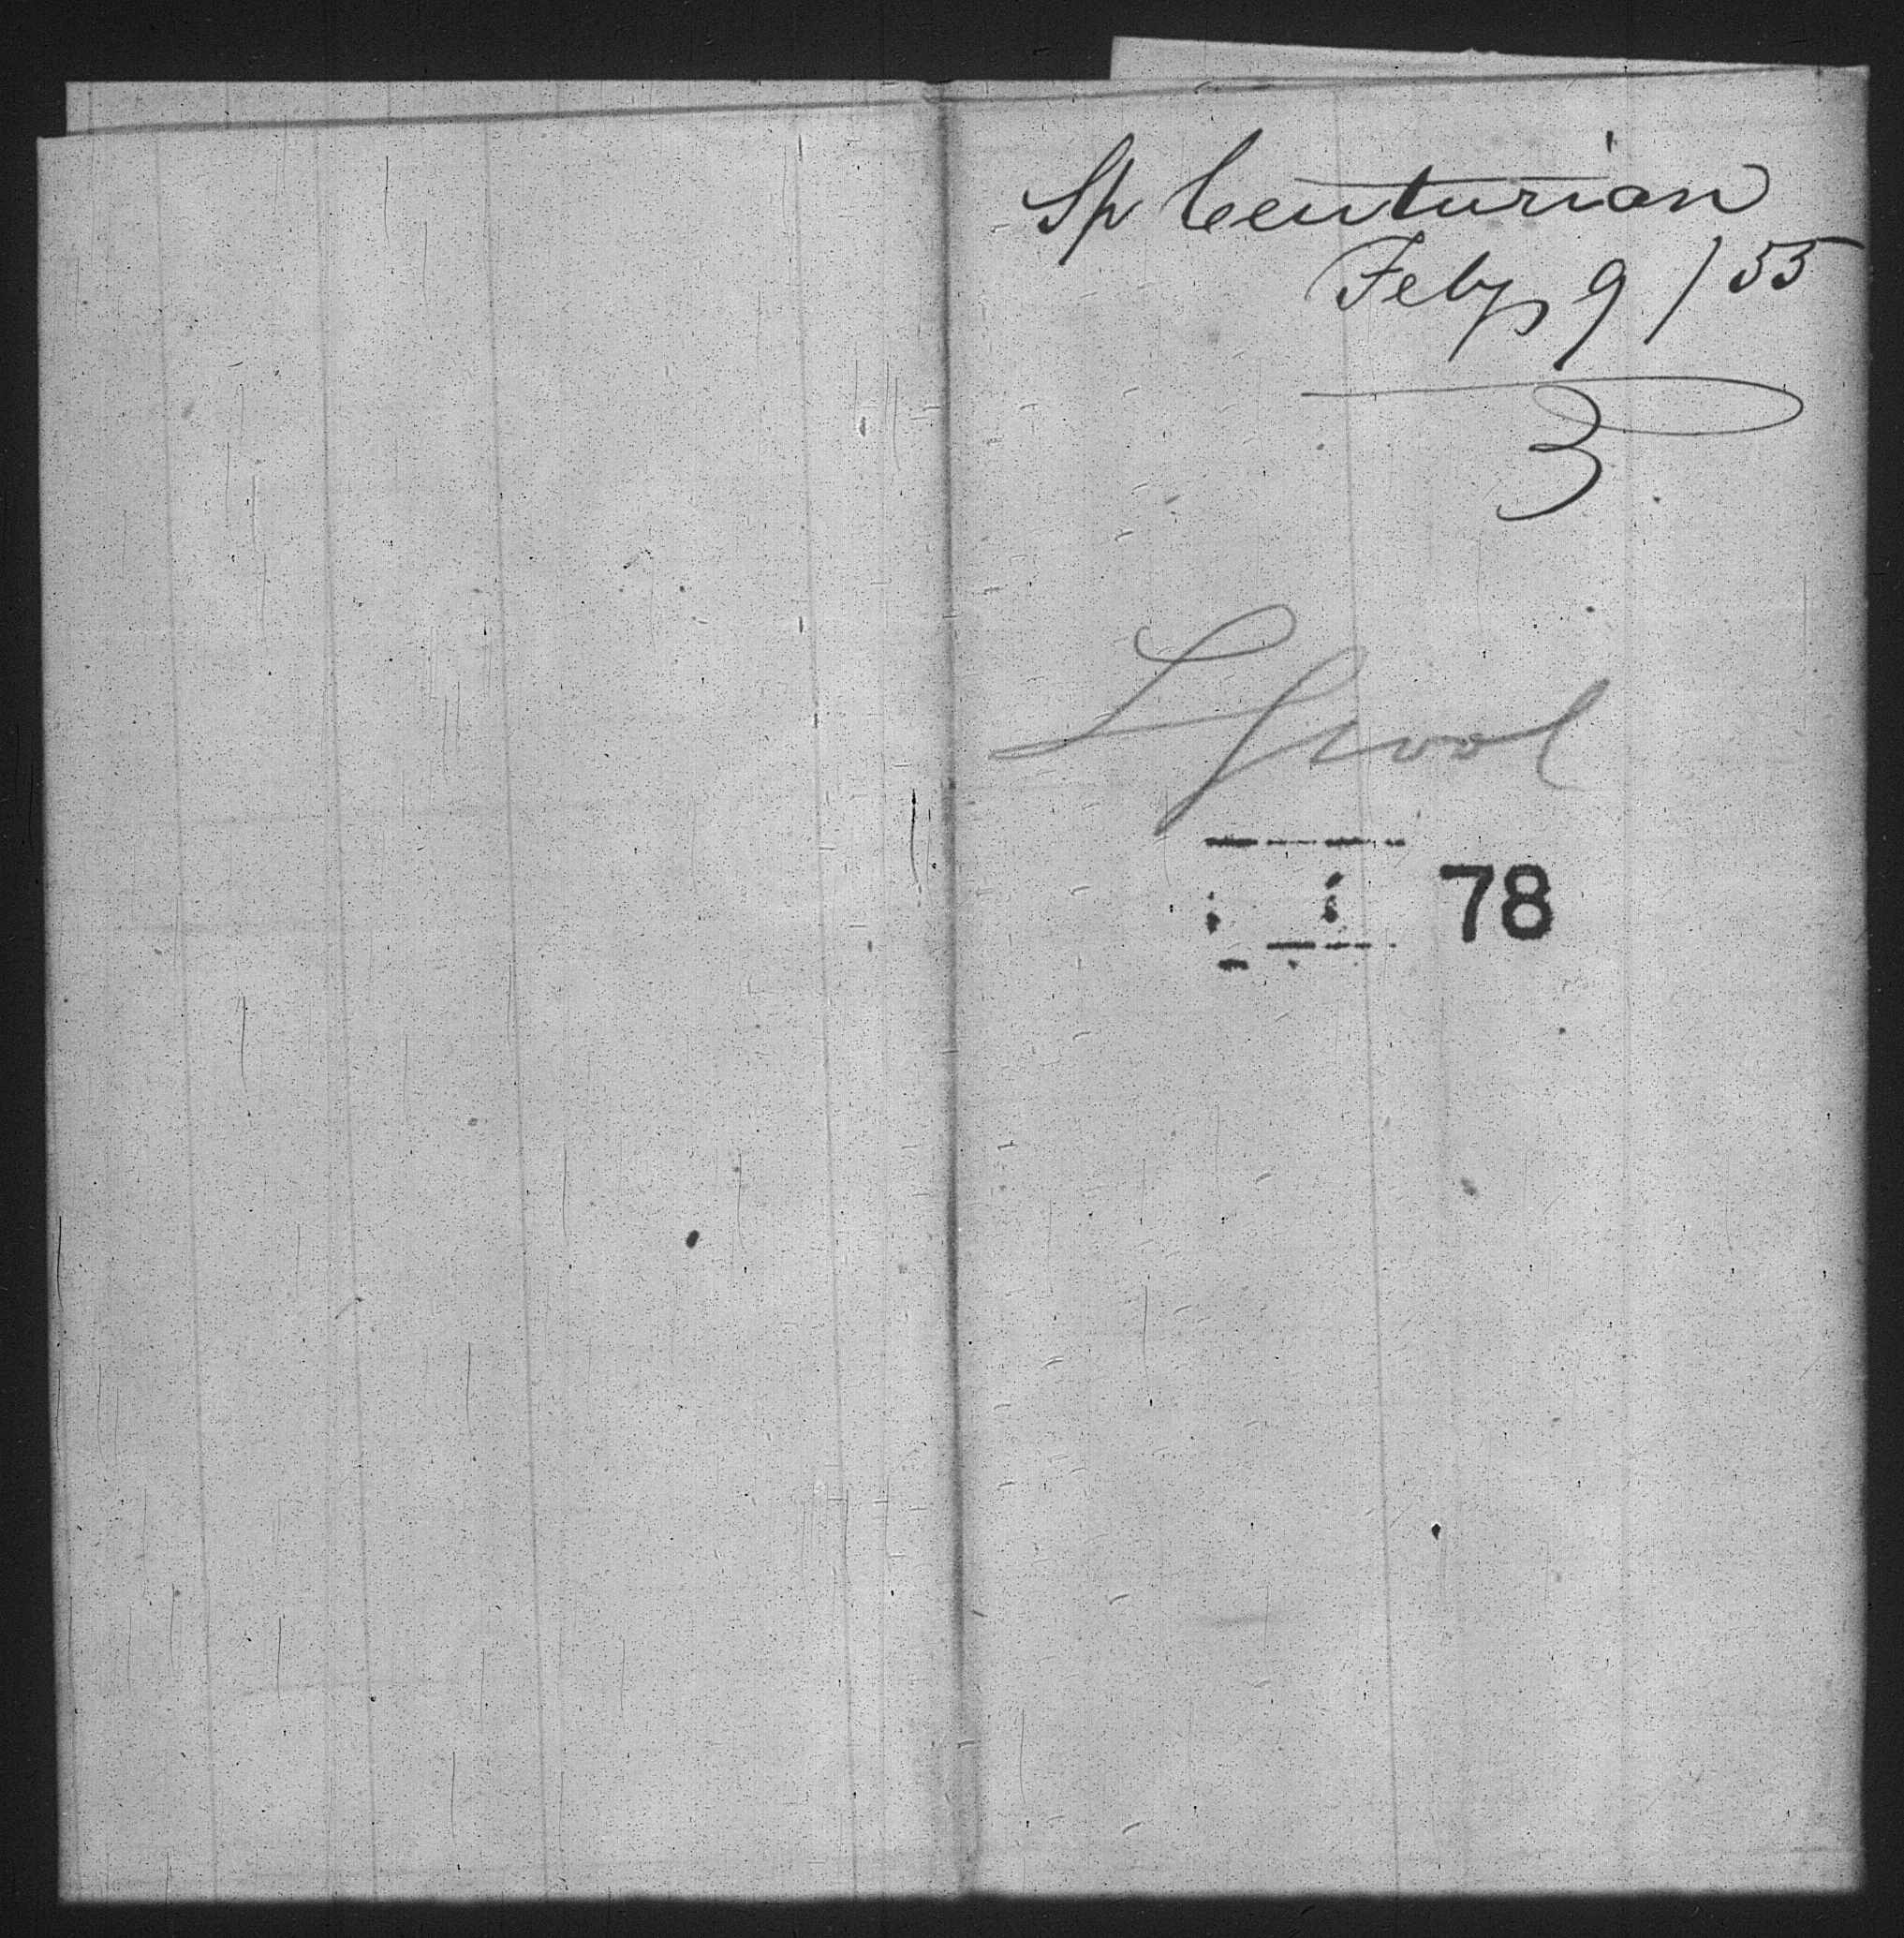 Sp Centurian
Feby 9 / 55
3
LPwool
78